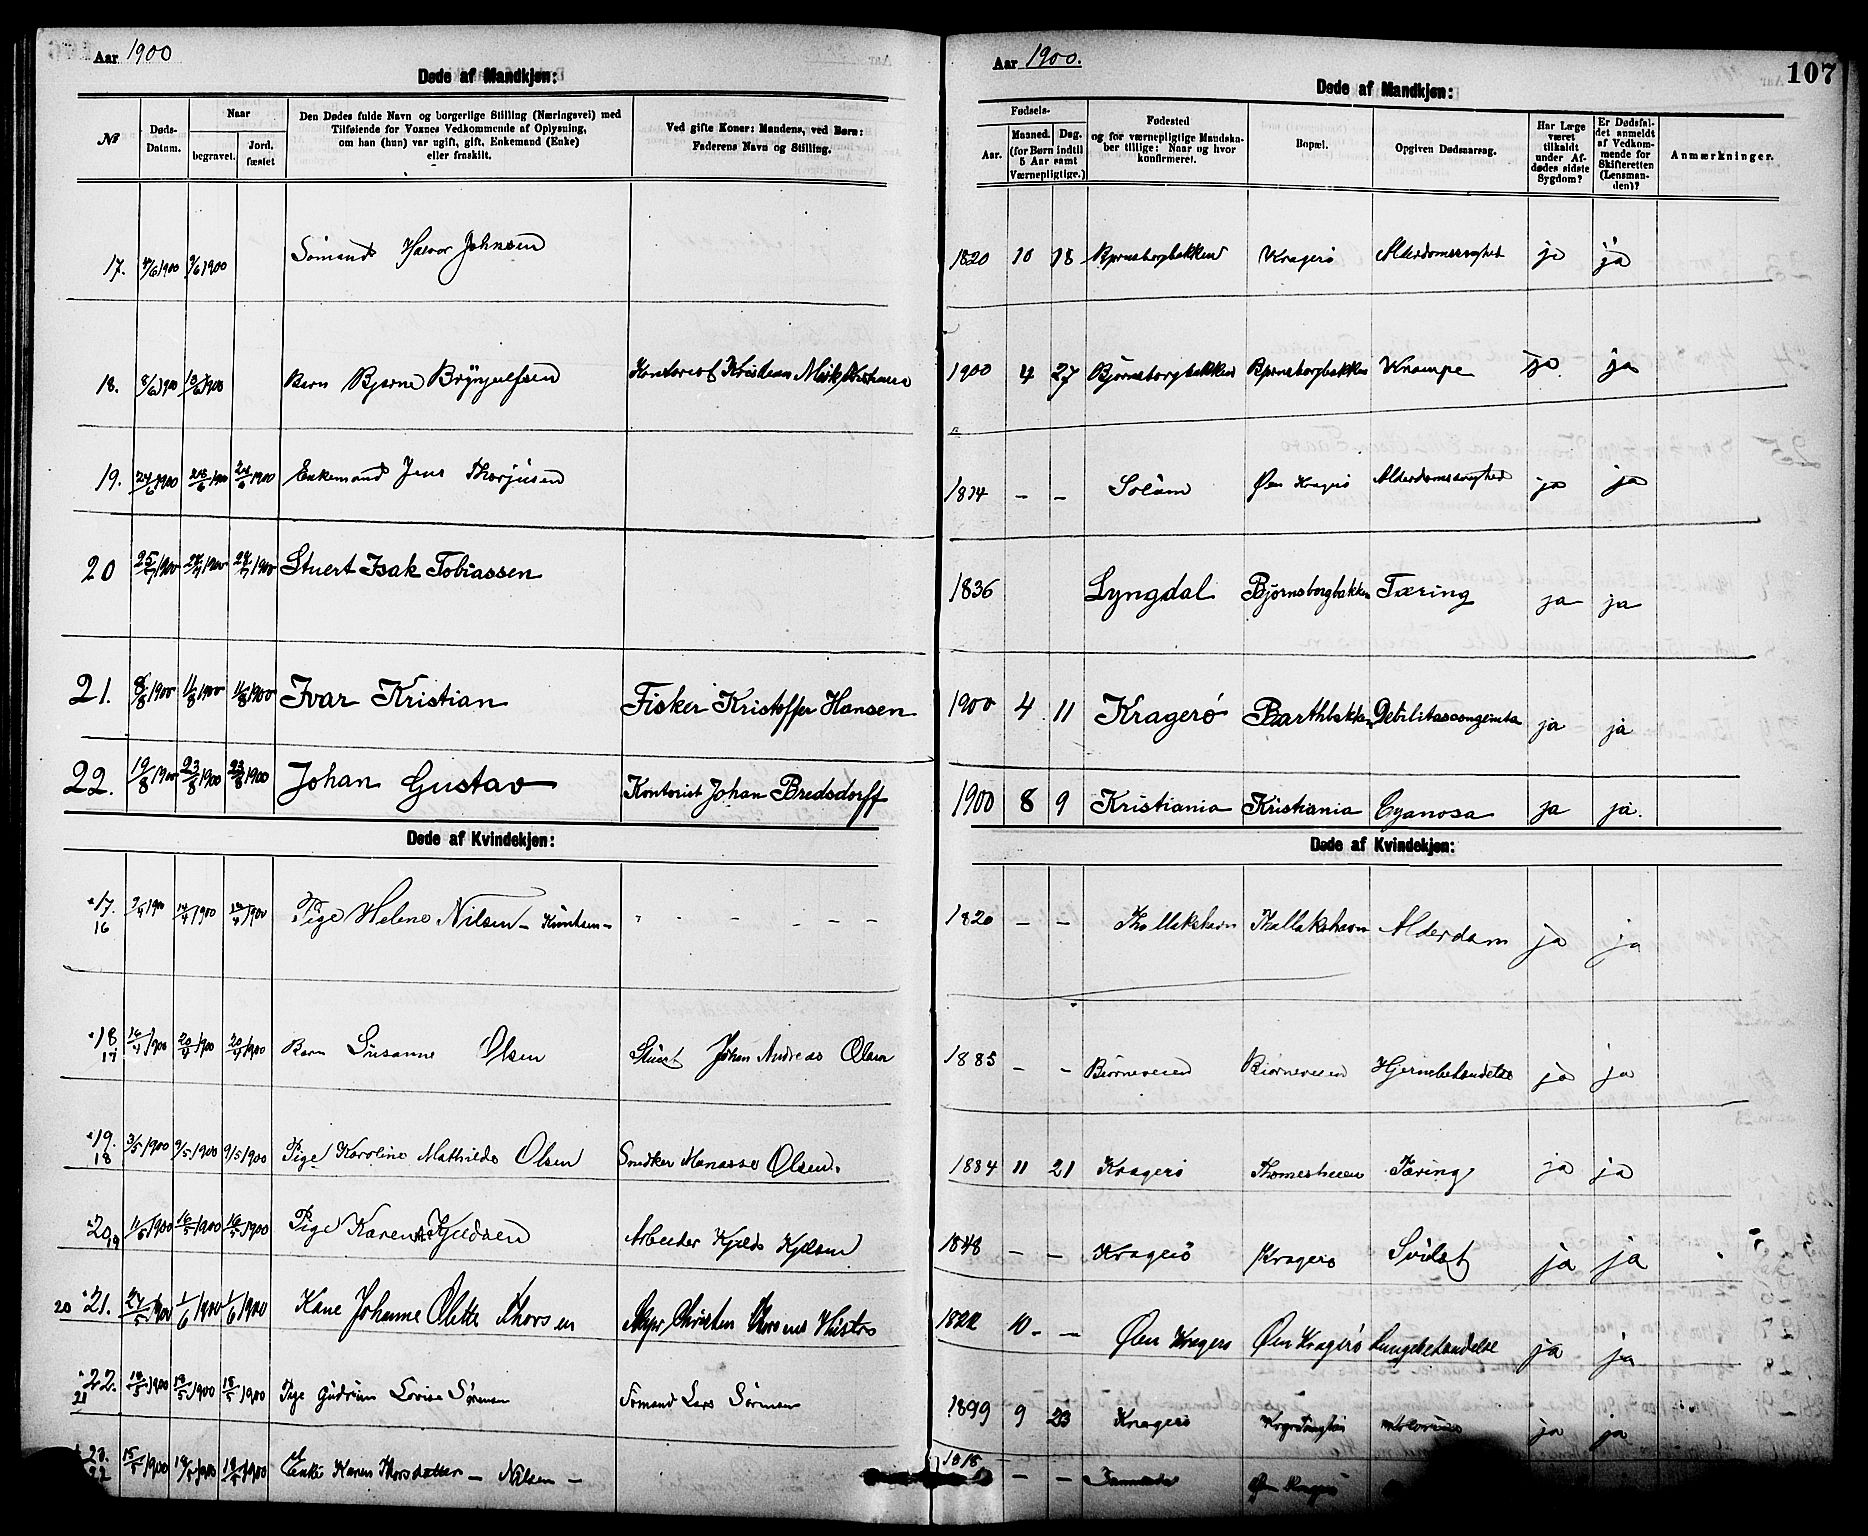 Aar 1900
Døde af Mandkjøn:
№
Døds-Datum.
Naar
begravet.
Jord-fæstet
Den Dødes fulde Navn og borgerlige Stilling (Næringsvei) med
Tilføiende for Voxnes Vedkommende af Oplysning,
om han (hun) var ugift, gift, Enkemand (Enke)
eller fraskilt.
Ved gifte Koner: Mandens, ved Børn:
Faderens Navn og Stilling.
17. 1900 1900 Sømand Halvor Johnsen
18. 8/6 1900 Barn Bjarne Brynjulfsen Kristian
19. 24/6 1900 28/6 1900 Enkemand Jens Thorjusen
20 25/7 1900 Stuert Isak Tobiassen
21. 8/8 1900 11/8 1900 11/8 1900 Ivar Kristian Fisker Kristoffer Hansen
22. 19/8 1900 23/8 1900 23/8 1900 Johan Gustav Kontorist Johan Bredsdorff
Døde af Kvindekjøn:
17. 16 1900 1900 Pige Helene Nilsen - Knudsen -
18 17 1900 20/4 1900 20/4 1900 Barn Susanne Olsen Stuert Johan Andreas Olsen
19. 18 3/5 1900 9/5 1900 9/5 1900 Pige Karoline Mathilde Olsen Snedker Manasse Olsen.
20 19 11/5 1900 16/5 1900 16/5 1900 Pige Karen Arbeider
20 21. 27/5 1900 1/6 1900 1/6 1900 Kone Johanne Olette Thorsen Christen
22. 21 1900 1900 18/5 1900 Pige Gudrun Lovise Sørensen Sømand Lars Sørensen
22 15/5 1900 1900 1900 Enke Karen Thorsdatter - Nilsen -
Aar 1900.
Døde af Mandkjøn:
107
Fødsels-
Aar.
Maaned. Dag.
(for Børn indtil
5 Aar samt
Værnepligtige.)
Fødested
og for værnepligtige Mandska-
ber tillige: Naar og hvor
konfirmeret.
Bopæl.
Opgiven Dødsaarsag.
Har Læge
været
tilkaldt
under Af-
dødes sidste
Sygdom?
Er Dødsfal-
det anmeldt
af Vedkom-
mende for
Skifteretten
(Lensman-
den)?
Anmærkninger.
1820 10 18 Bjørnsborgbakken Kragerø Alderdomssvaghed ja ja
1900 4 27 Bjørnsborgbakken Bjørnsborgbakken Krampe ja ja
1814 - - Solum Øen Kragerø Alderdomssvaghed ja ja
1836 Lyngdal Bjørnsborgbakken Tæring ja ja
1900 4 11 Kragerø Barthbakken Debilitas congenita ja ja
1900 8 9 Kristiania Kristiania Cyanosa ja ja.
Døde af Kvindekjøn:
1820 - - Thallakshavn Thallakshavn Alderdom ja ja
1885 - - Biørneveien Biørneveien Hjernebetændelse ja ja
1884 11 21 Kragerø Thomesheien Tæring ja ja
1848 - - Kragerø Kragerø ja ja
1822 10 - - Øen Kragerø Øen Kragerø Lungebetændelse ja ja
1899 9 23 Kragerø ja ja
- - Øen Kragerø